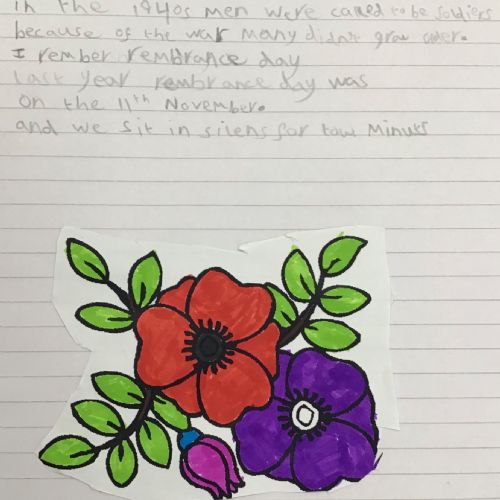 in the 1940s men were called to be soldiers
because of the war many didn't grow older.
I rember rembrance day
last year rembrance day was
on the 11th November.
and we sit in silens for tow minuts